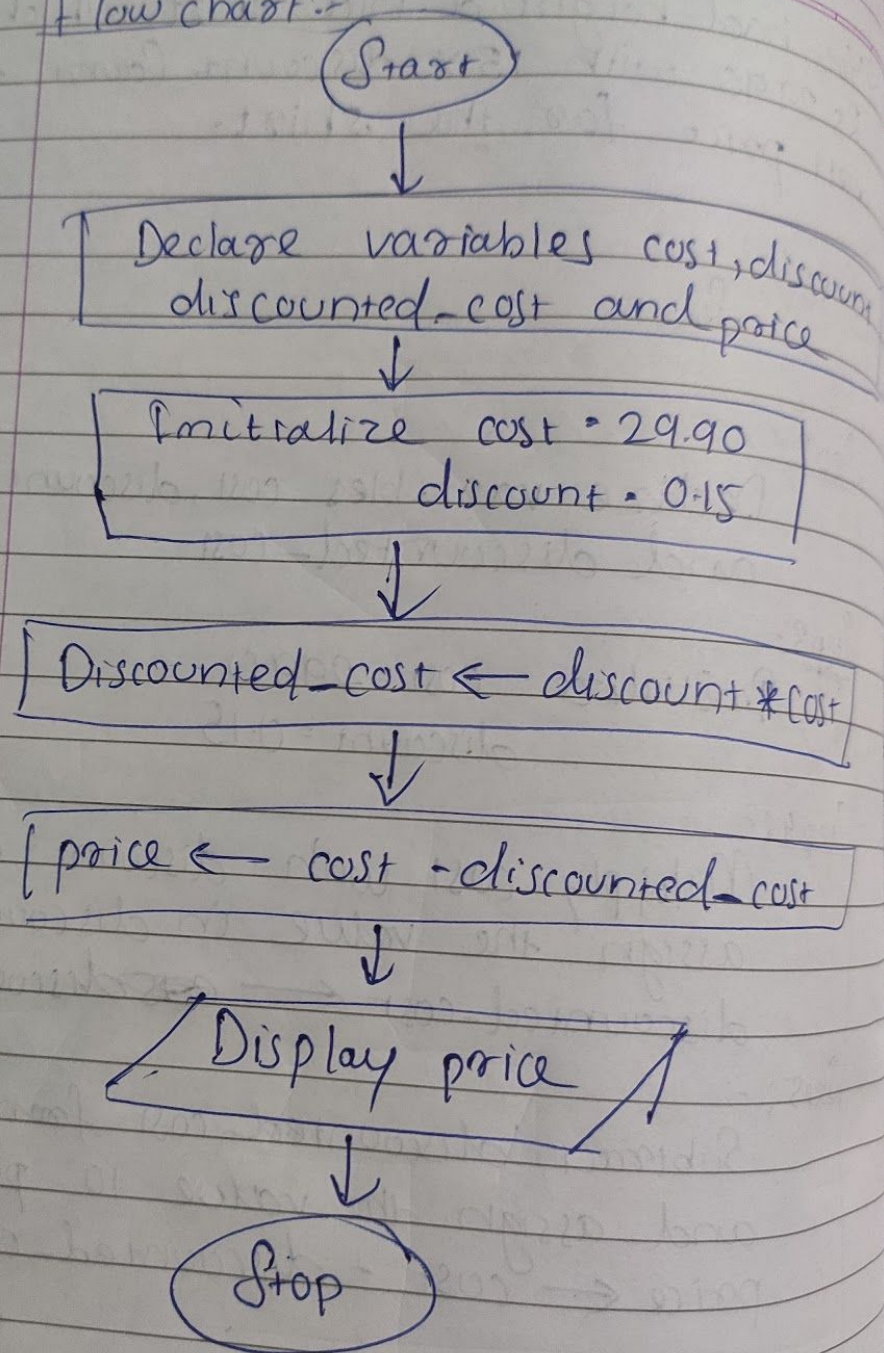 Flow chart:-
Start
Declare variables cost, discount
discounted_cost and price
Initialize cost = 29.90
discount = 0.15
Discounted_cost ← discount * cost
price ← cost - discounted_cost
Display price
Stop